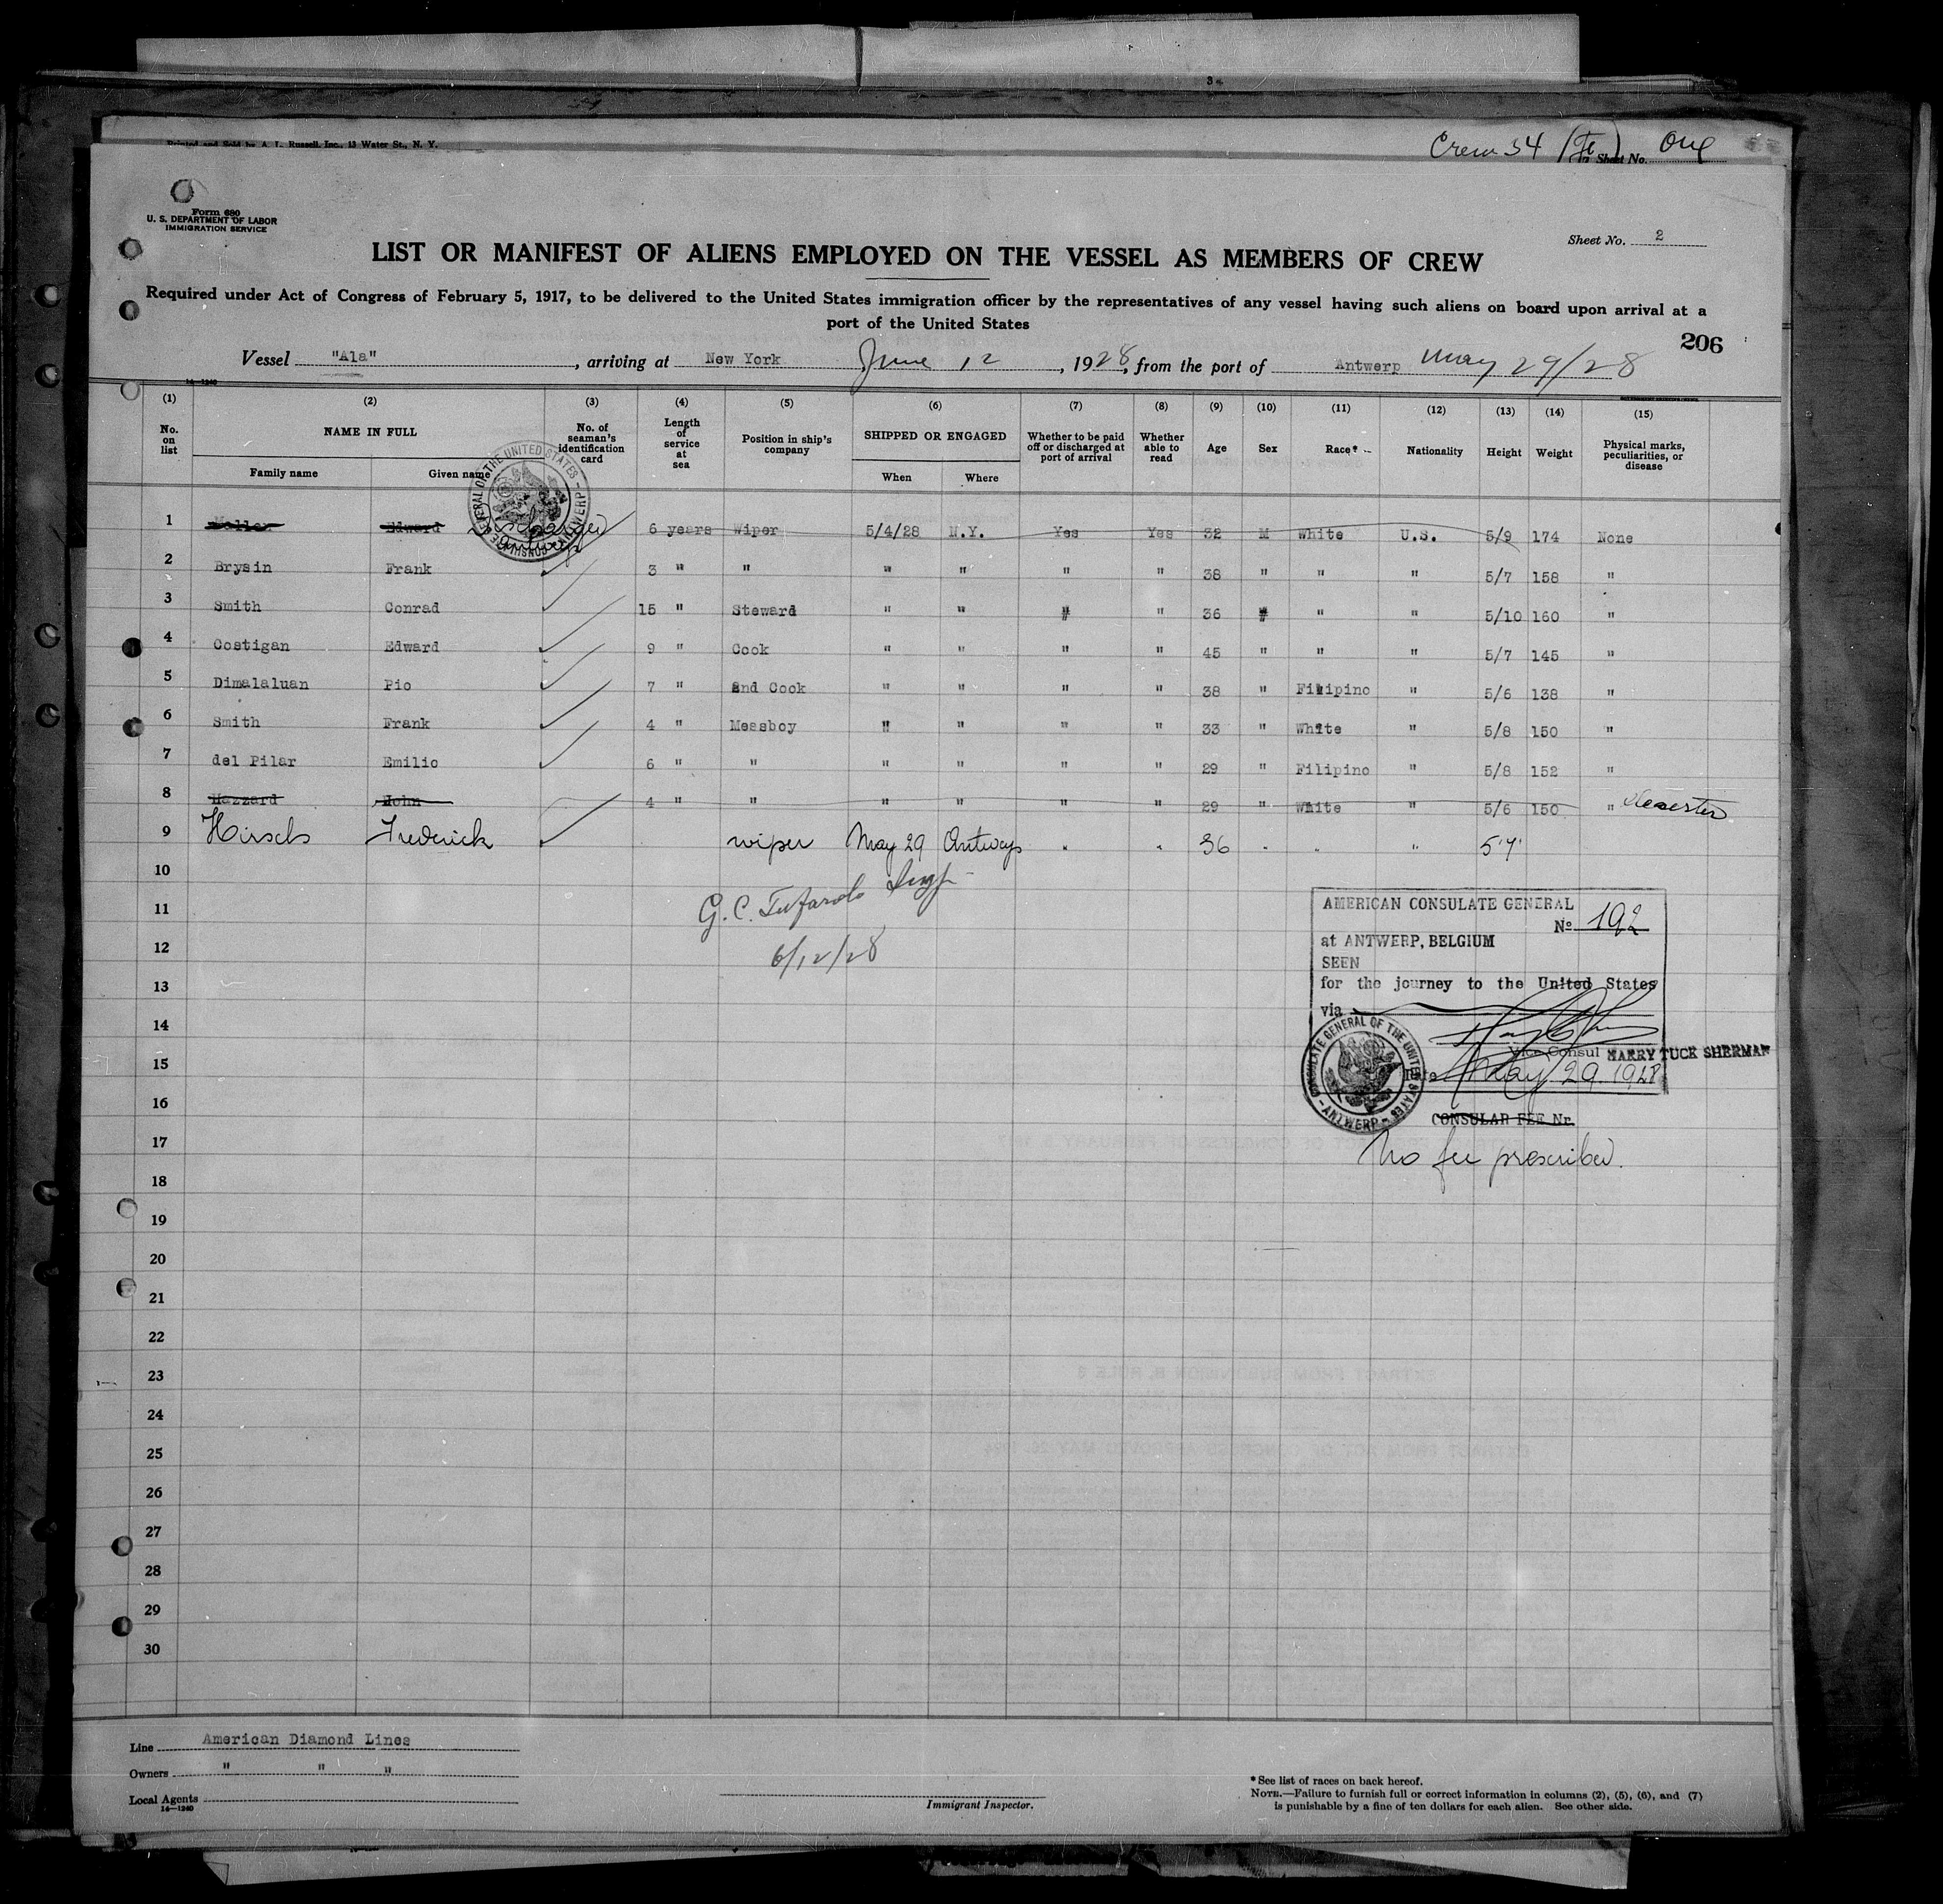 34
Printed and Sold by A. L. Russell, Inc., 13 Water St., N. Y.
Crew 34 Sheet No. One
Form 680
U. S. DEPARTMENT OF LABOR
IMMIGRATION SERVICE
Sheet No. 2
LIST OR MANIFEST OF ALIENS EMPLOYED ON THE VESSEL AS MEMBERS OF CREW
Required under Act of Congress of February 5, 1917, to be delivered to the United States immigration officer by the representatives of any vessel having such aliens on board upon arrival at a
port of the United States
206
Vessel "Ala", arriving at New York June 12, 1928, from the port of Antwerp May 29/28
14-1240
(1) (2) (3) (4) (5) (6) (7) (8) (9) (10) (11) (12) (13) (14) (15)
No. on list NAME IN FULL Family name Given name No. of seaman's identification card Length of service at sea Position in ship's company SHIPPED OR ENGAGED When Where Whether to be paid off or discharged at port of arrival Whether able to read Age Sex Race* Nationality Height Weight Physical marks, peculiarities, or disease
1 Edward 6 years Wiper 5/4/28 N.Y. Yes Yes 32 M White U.S. 5/9 174 None
2 Brysin Frank 3 " " " " " " 38 " " " 5/7 158 "
3 Smith Conrad 15 " Steward " " " " 36 " " " 5/10 160 "
4 Costigan Edward 9 " Cook " " " " 45 " " " 5/7 145 "
5 Dimalaluan Pio 7 " 2nd Cook " " " " 38 " Filipino " 5/6 138 "
6 Smith Frank 4 " Messboy " " " " 33 " White " 5/8 150 "
7 del Pilar Emilio 6 " " " " " " 29 " Filipino " 5/8 152 "
8 Hazzard John 4 " " " " " " 29 " White " 5/6 150 " Deserter
9 Hirsch Frederick wiper May 29 Antwerp " " 36 " " " 5'7"
10
11
12
13
14
15
16
17
18
19
20
21
22
23
24
25
26
27
28
29
30
G. C. Tufarolo Insp
6/12/28
AMERICAN CONSULATE GENERAL
No 192
at ANTWERP, BELGIUM
SEEN
for the journey to the United States
via
Vice Consul HARRY TUCK SHERMAN
Date May 29. 1928
CONSULATE GENERAL OF THE UNITED STATES - ANTWERP -
CONSULAR FEE Nr.
No fee prescribed.
Line American Diamond Lines
Owners " " "
Local Agents
14—1240
Immigrant Inspector.
*See list of races on back hereof.
NOTE.—Failure to furnish full or correct information in columns (2), (5), (6), and (7)
is punishable by a fine of ten dollars for each alien. See other side.